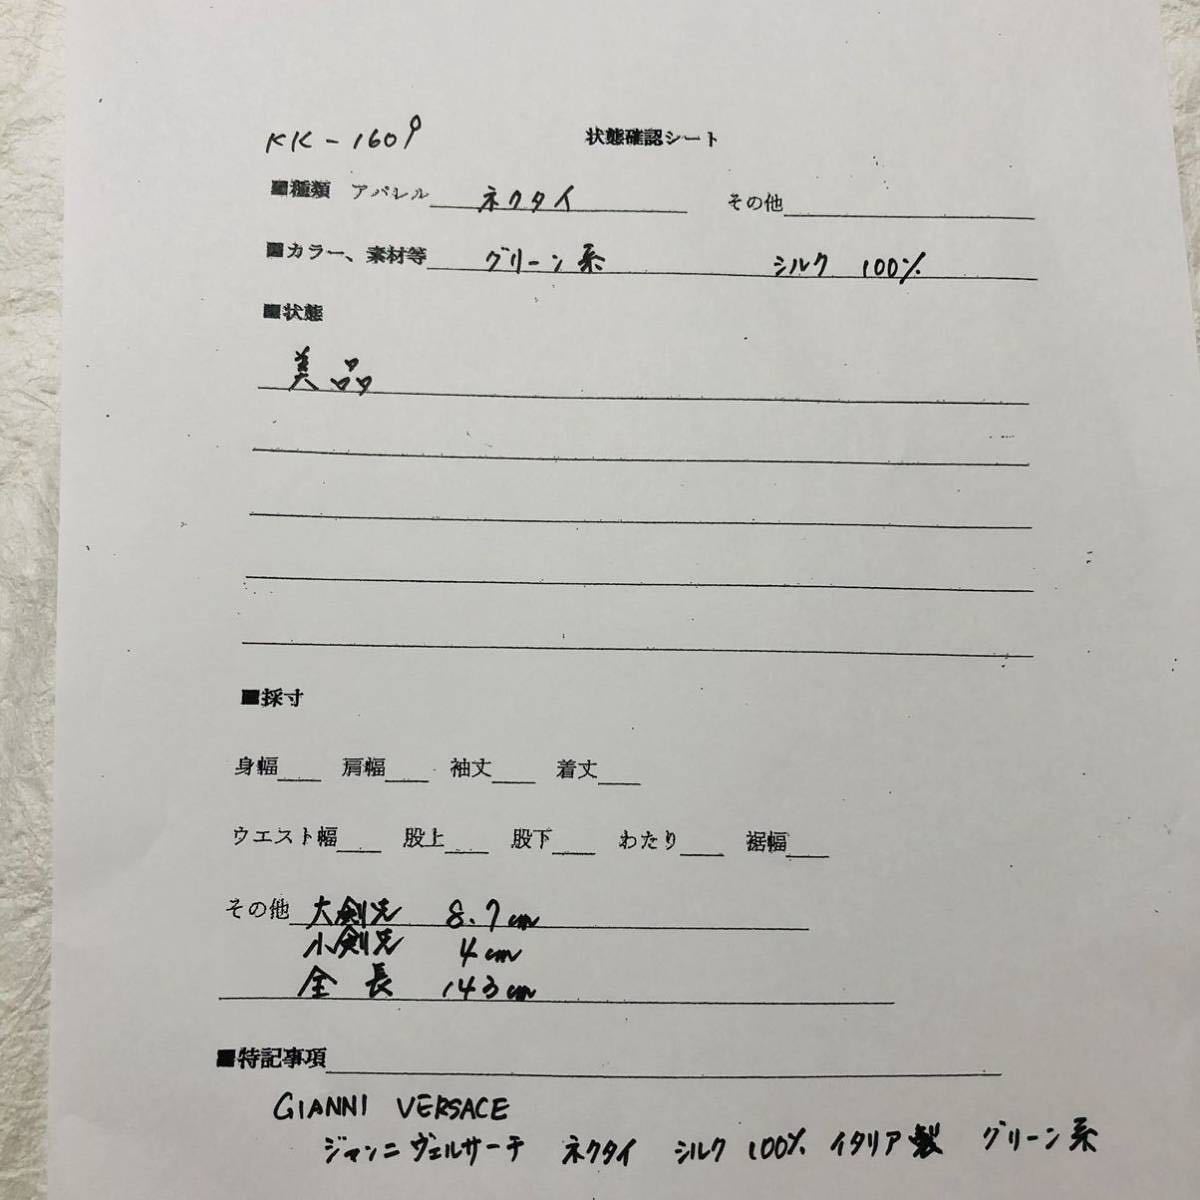 KK-1609 状態確認シート
■種類 アパレル ネクタイ その他
■カラー、素材等 グリーン系 シルク 100%
■状態
美品
■採寸
身幅 肩幅 袖丈 着丈
ウエスト幅 股上 股下 わたり 裾幅
その他 大剣先 8.7cm
小剣先 4cm
全長 143cm
■特記事項
GIANNI VERSACE
ジャンニヴェルサーチ ネクタイ シルク 100% イタリア製 グリーン系